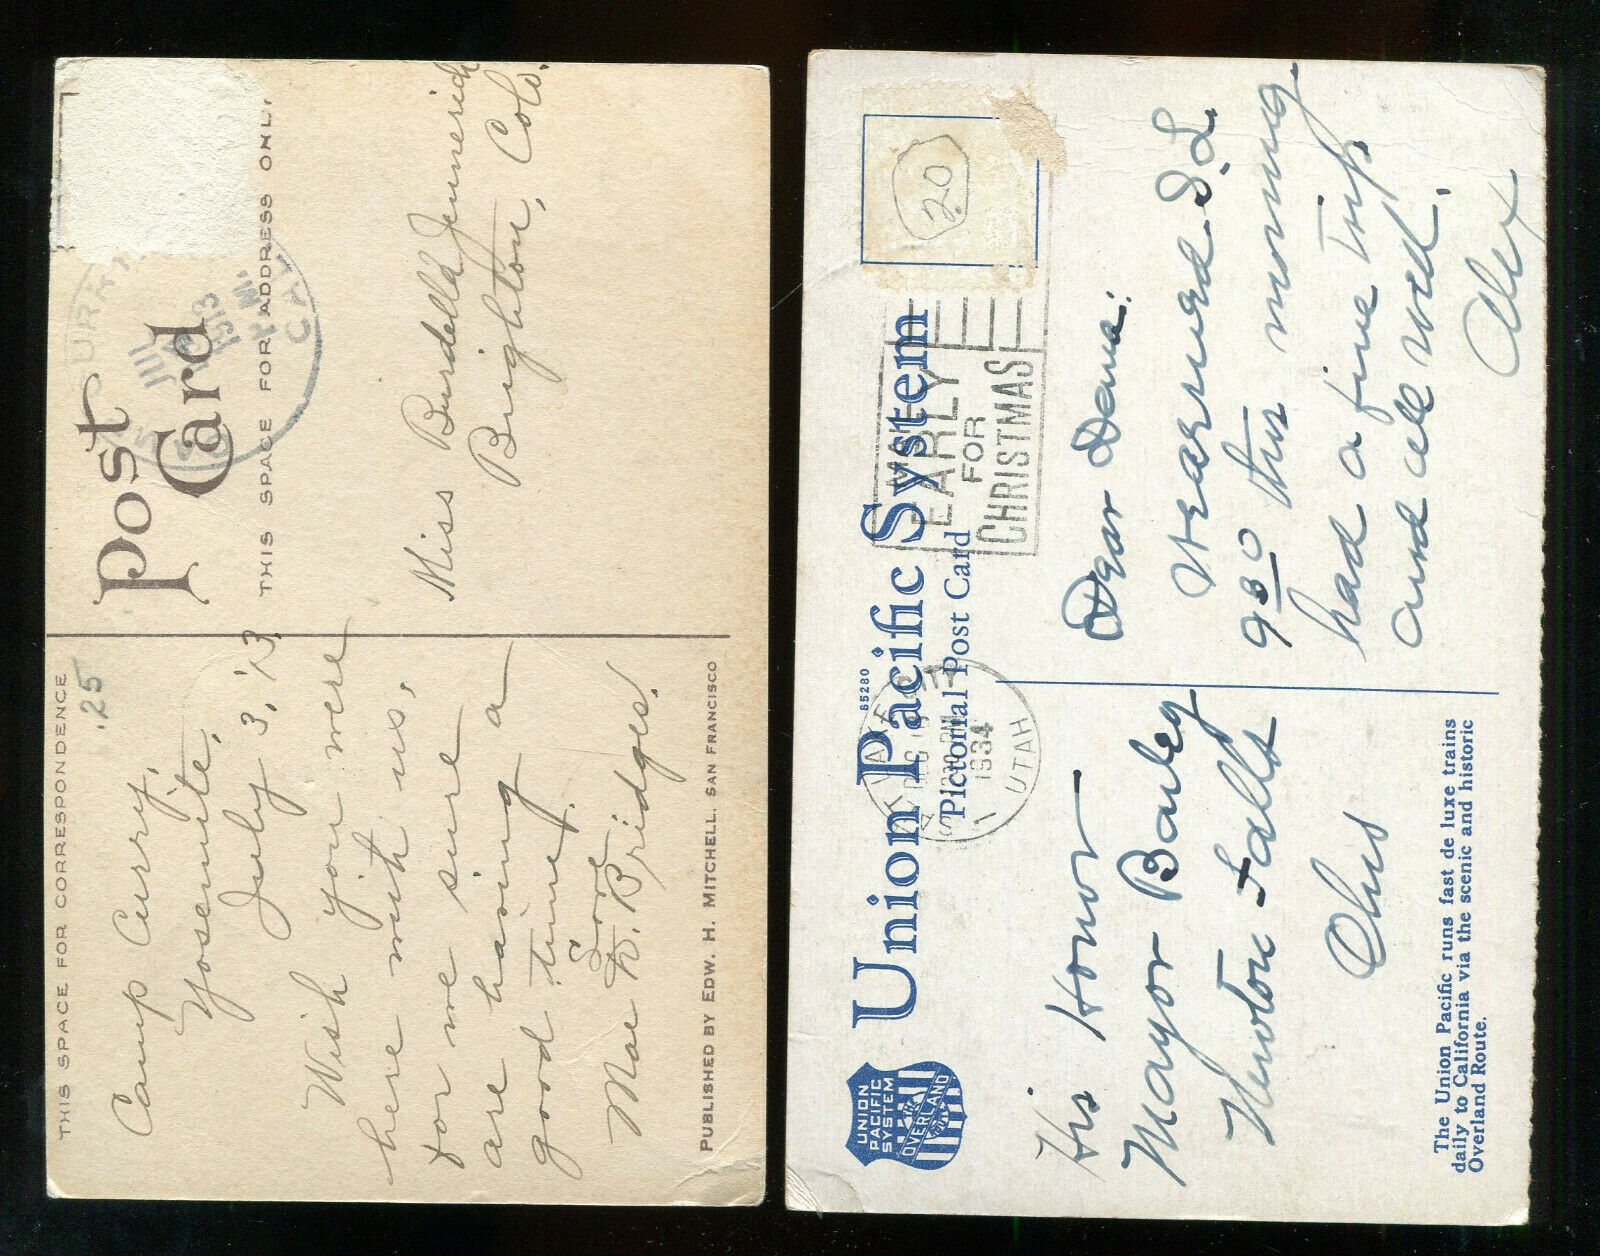 THIS SPACE FOR CORRESPONDENCE
.25
Camp Curry,
Yosemite,
July 3, '13,
Wish you were
here with us,
for we sure
are having a
good time.
Love
Mae D. Bridges.
PUBLISHED BY EDW. H. MITCHELL, SAN FRANCISCO
Post
Card
THIS SPACE FOR ADDRESS ONLY
JUL
1913
CAL
Miss Burdella
Brighton, Colo.
UNION
PACIFIC
SYSTEM
THE
OVERLAND
Union Pacific System
65280
Pictorial Post Card
SALT LAKE CITY
DEC
PM
1934
UTAH
MAIL
EARLY
FOR
CHRISTMAS
20
His Honor
Mayor Bailey
Newton Falls
Ohio
The Union Pacific runs fast de luxe trains
daily to California via the scenic and historic
Overland Route.
Dear
S.L.
930 this morning
had a fine trip
and all well.
Alex